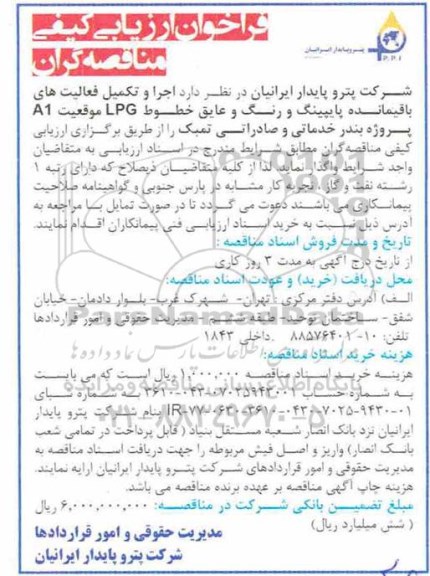 فراخوان ارزیابی کیفی
مناقصه گران
پتروپایدار ایرانیان
P.P.I
شرکت پترو پایدار ایرانیان در نظر دارد اجرا و تکمیل فعالیت های
باقیمانده پایپینگ و رنگ و عایق خطوط LPG موقعیت A1
پروژه بندر خدماتی و صادراتی تمبک را از طریق برگزاری ارزیابی
کیفی مناقصه گران مطابق شرایط مندرج در اسناد ارزیابی به متقاضیان
واجد شرایط واگذار نماید لذا از کلیه متقاضیان ذیصلاح که دارای رتبه ۱
رشته نفت و گاز، تجربه کار مشابه در پارس جنوبی و گواهینامه صلاحیت
پیمانکاری می باشند دعوت می گردد تا در صورت تمایل با مراجعه به
آدرس ذیل نسبت به خرید اسناد ارزیابی فنی پیمانکاران اقدام نمایند.
تاریخ و مدت فروش اسناد مناقصه :
از تاریخ درج آگهی به مدت ۳ روز کاری
محل دریافت (خرید) و عودت اسناد مناقصه:
الف) آدرس دفتر مرکزی : تهران- شهرک غرب- بلوار دادمان- خیابان
شفق- ساختمان توحید- طبقه - مدیریت حقوقی و امور قراردادها
تلفن: ۱۰-۸۸۵۷۶۴۰۲ داخلی ۱۸۴۳
هزینه خرید اسناد مناقصه:
هزینه خرید اسناد مناقصه ریال است که می بایست
به شماره حساب به شماره شبای
بنام شرکت پترو پایدار
ایرانیان نزد بانک انصار شعبه مستقل بنیاد ( قابل پرداخت در تمامی شعب
بانک انصار) واریز و اصل فیش مربوطه را جهت دریافت اسناد مناقصه به
مدیریت حقوقی و امور قراردادهای شرکت پترو پایدار ایرانیان ارایه نمایند.
هزینه چاپ آگهی مناقصه بر عهده برنده مناقصه می باشد.
مبلغ تضمین بانکی شرکت در مناقصه: ۶,۰۰۰,۰۰۰,۰۰۰ ریال
( شش میلیارد ریال)
مدیریت حقوقی و امور قراردادها
شرکت پترو پایدار ایرانیان